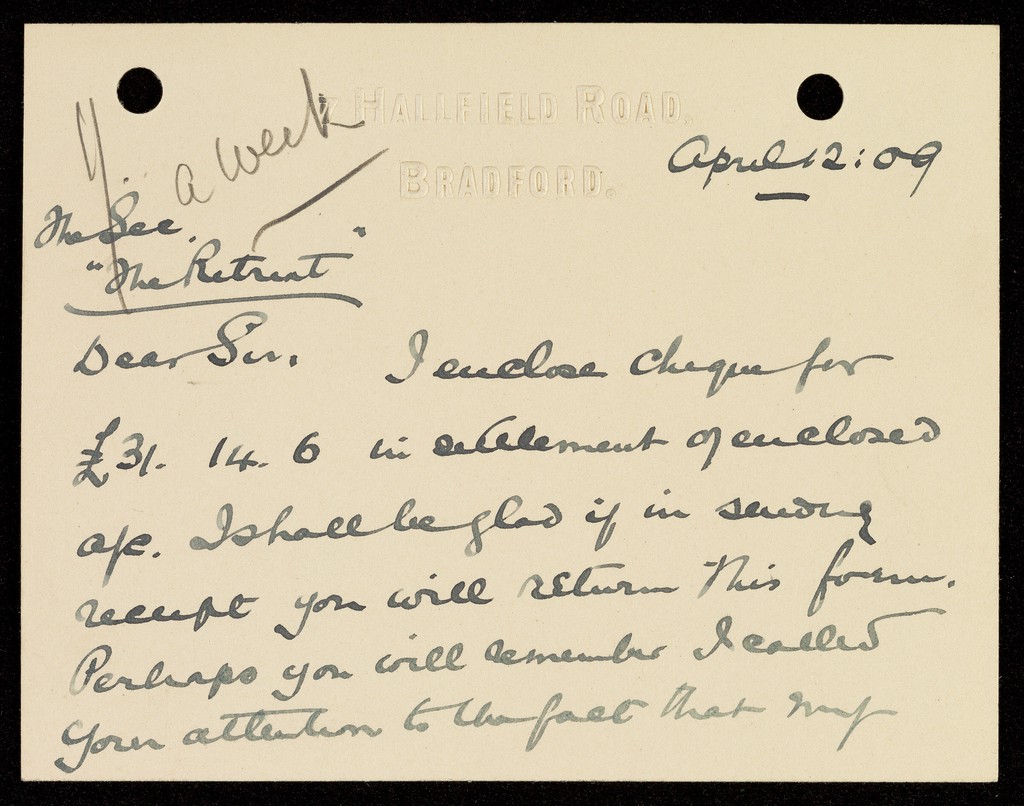 7 HALLFIELD ROAD.
BRADFORD.
a week
April 12:09
The Sec.
"The Retreat"
Dear Sir, I enclose cheque for
£31. 14. 6 in settlement of enclosed
a/c. I shall be glad if in sending
receipt you will return this form.
Perhaps you will remember I called
your attention to the fact that my